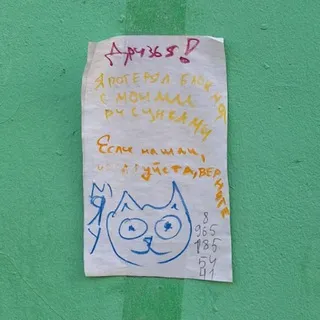 Друзья!
Я потерял блокнот
с моими
рисунками
Если нашли,
пожалуйста, верните
МЯУ
8
965
185
54
41